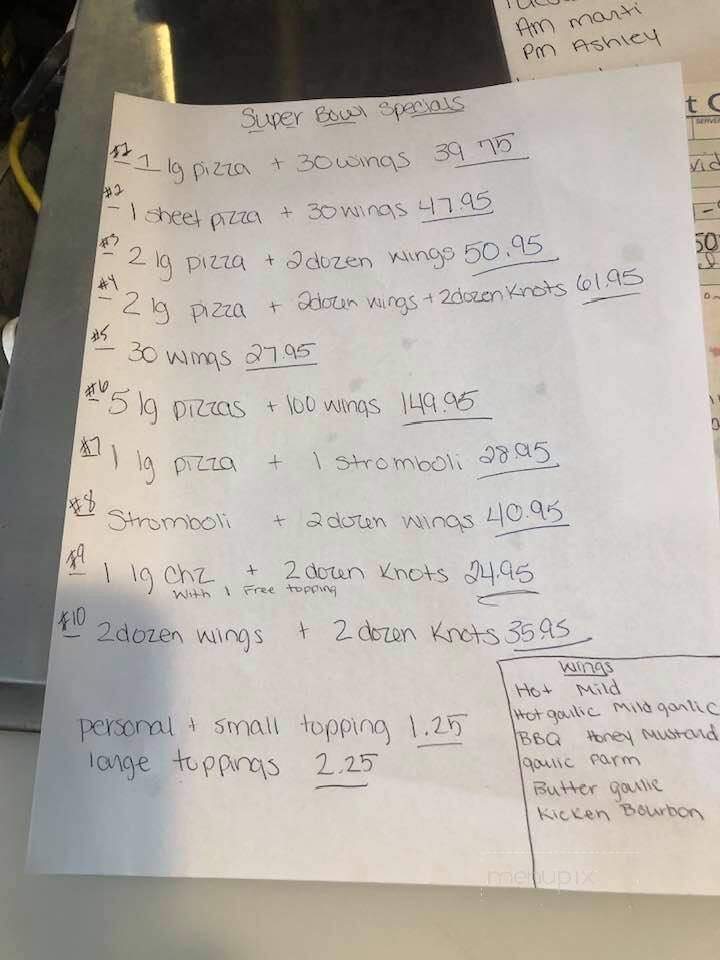 Am marti
Pm Ashley
Super Bowl Specials
#1 1 lg pizza + 30 wings 39 75
#2 1 sheet pizza + 30 wings 47.95
#3 2 lg pizza + 2dozen wings 50.95
#4 2 lg pizza + 2dozen wings + 2dozen Knots 61.95
#5 30 wings 27.95
#6 5 lg pizzas + 100 wings 149.95
#7 1 lg pizza + 1 stromboli 28.95
#8 Stromboli + 2 dozen wings 40.95
#9 1 lg Chz + 2 dozen Knots 24.95
with 1 Free topping
#10 2dozen wings + 2 dozen Knots 35.95
personal + small topping 1.25
large toppings 2.25
wings
Hot Mild
Hot garlic Mild garlic
BBQ Honey Mustard
garlic Parm
Butter garlic
Kicken Bourbon
menupix